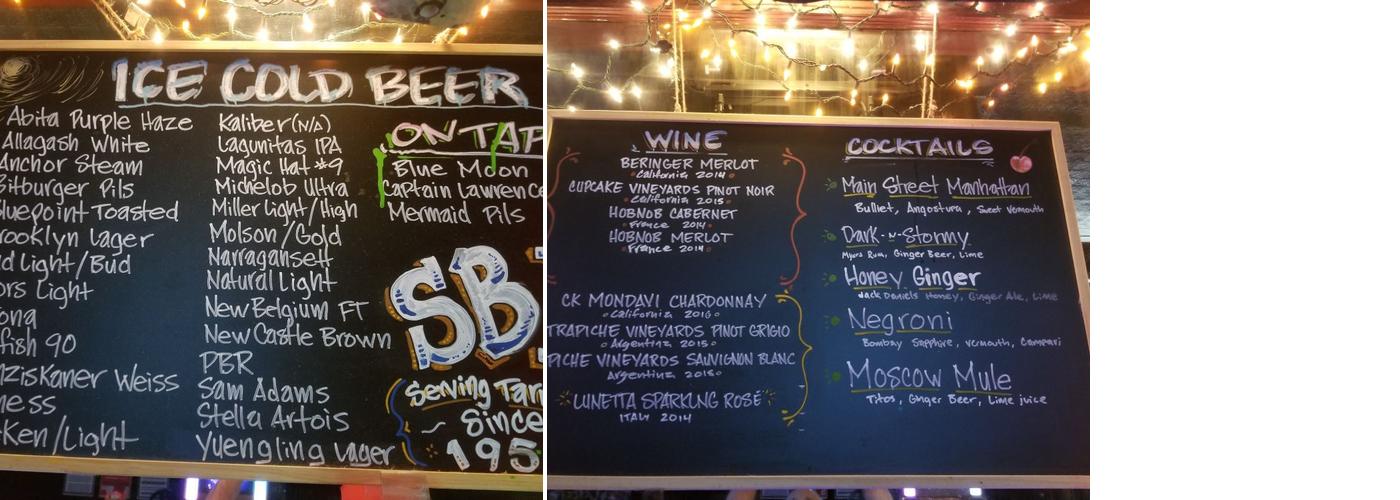 ICE COLD BEER
Abita Purple Haze
Allagash White
Anchor Steam
Bitburger Pils
luepoint Toasted
rooklyn Lager
d Light/Bud
ors Light
ona
fish 90
nziskaner Weiss
ness
Ken/Light
Kaliber (N/A)
Lagunitas IPA
Magic Hat #9
Michelob Ultra
Miller Light/High
Molson/Gold
Narragansett
Natural Light
New Belgium FT
New Castle Brown
PBR
Sam Adams
Stella Artois
Yuengling Lager
ON TAP
Blue Moon
Captain Lawrence
Mermaid Pils
SB
Serving Tarr
Since
195
WINE
BERINGER MERLOT
California 2014
CUPCAKE VINEYARDS PINOT NOIR
California 2015
HOBNOB CABERNET
France 2014
HOBNOB MERLOT
France 2014
CK MONDAVI CHARDONNAY
California 2016
TRAPICHE VINEYARDS PINOT GRIGIO
Argentina 2015
PICHE VINEYARDS SAUVIGNON BLANC
Argentina 2015
LUNETTA SPARKLNG ROSÉ
ITALY 2014
COCKTAILS
Main Street Manhattan
Bulliet, Angostura, Sweet Vermouth
Dark-n-Stormy
Myers Rum, Ginger Beer, Lime
Honey Ginger
Jack Daniels Honey, Ginger Ale, Lime
Negroni
Bombay Sapphire, Vermouth, Campari
Moscow Mule
Titos, Ginger Beer, Lime juice